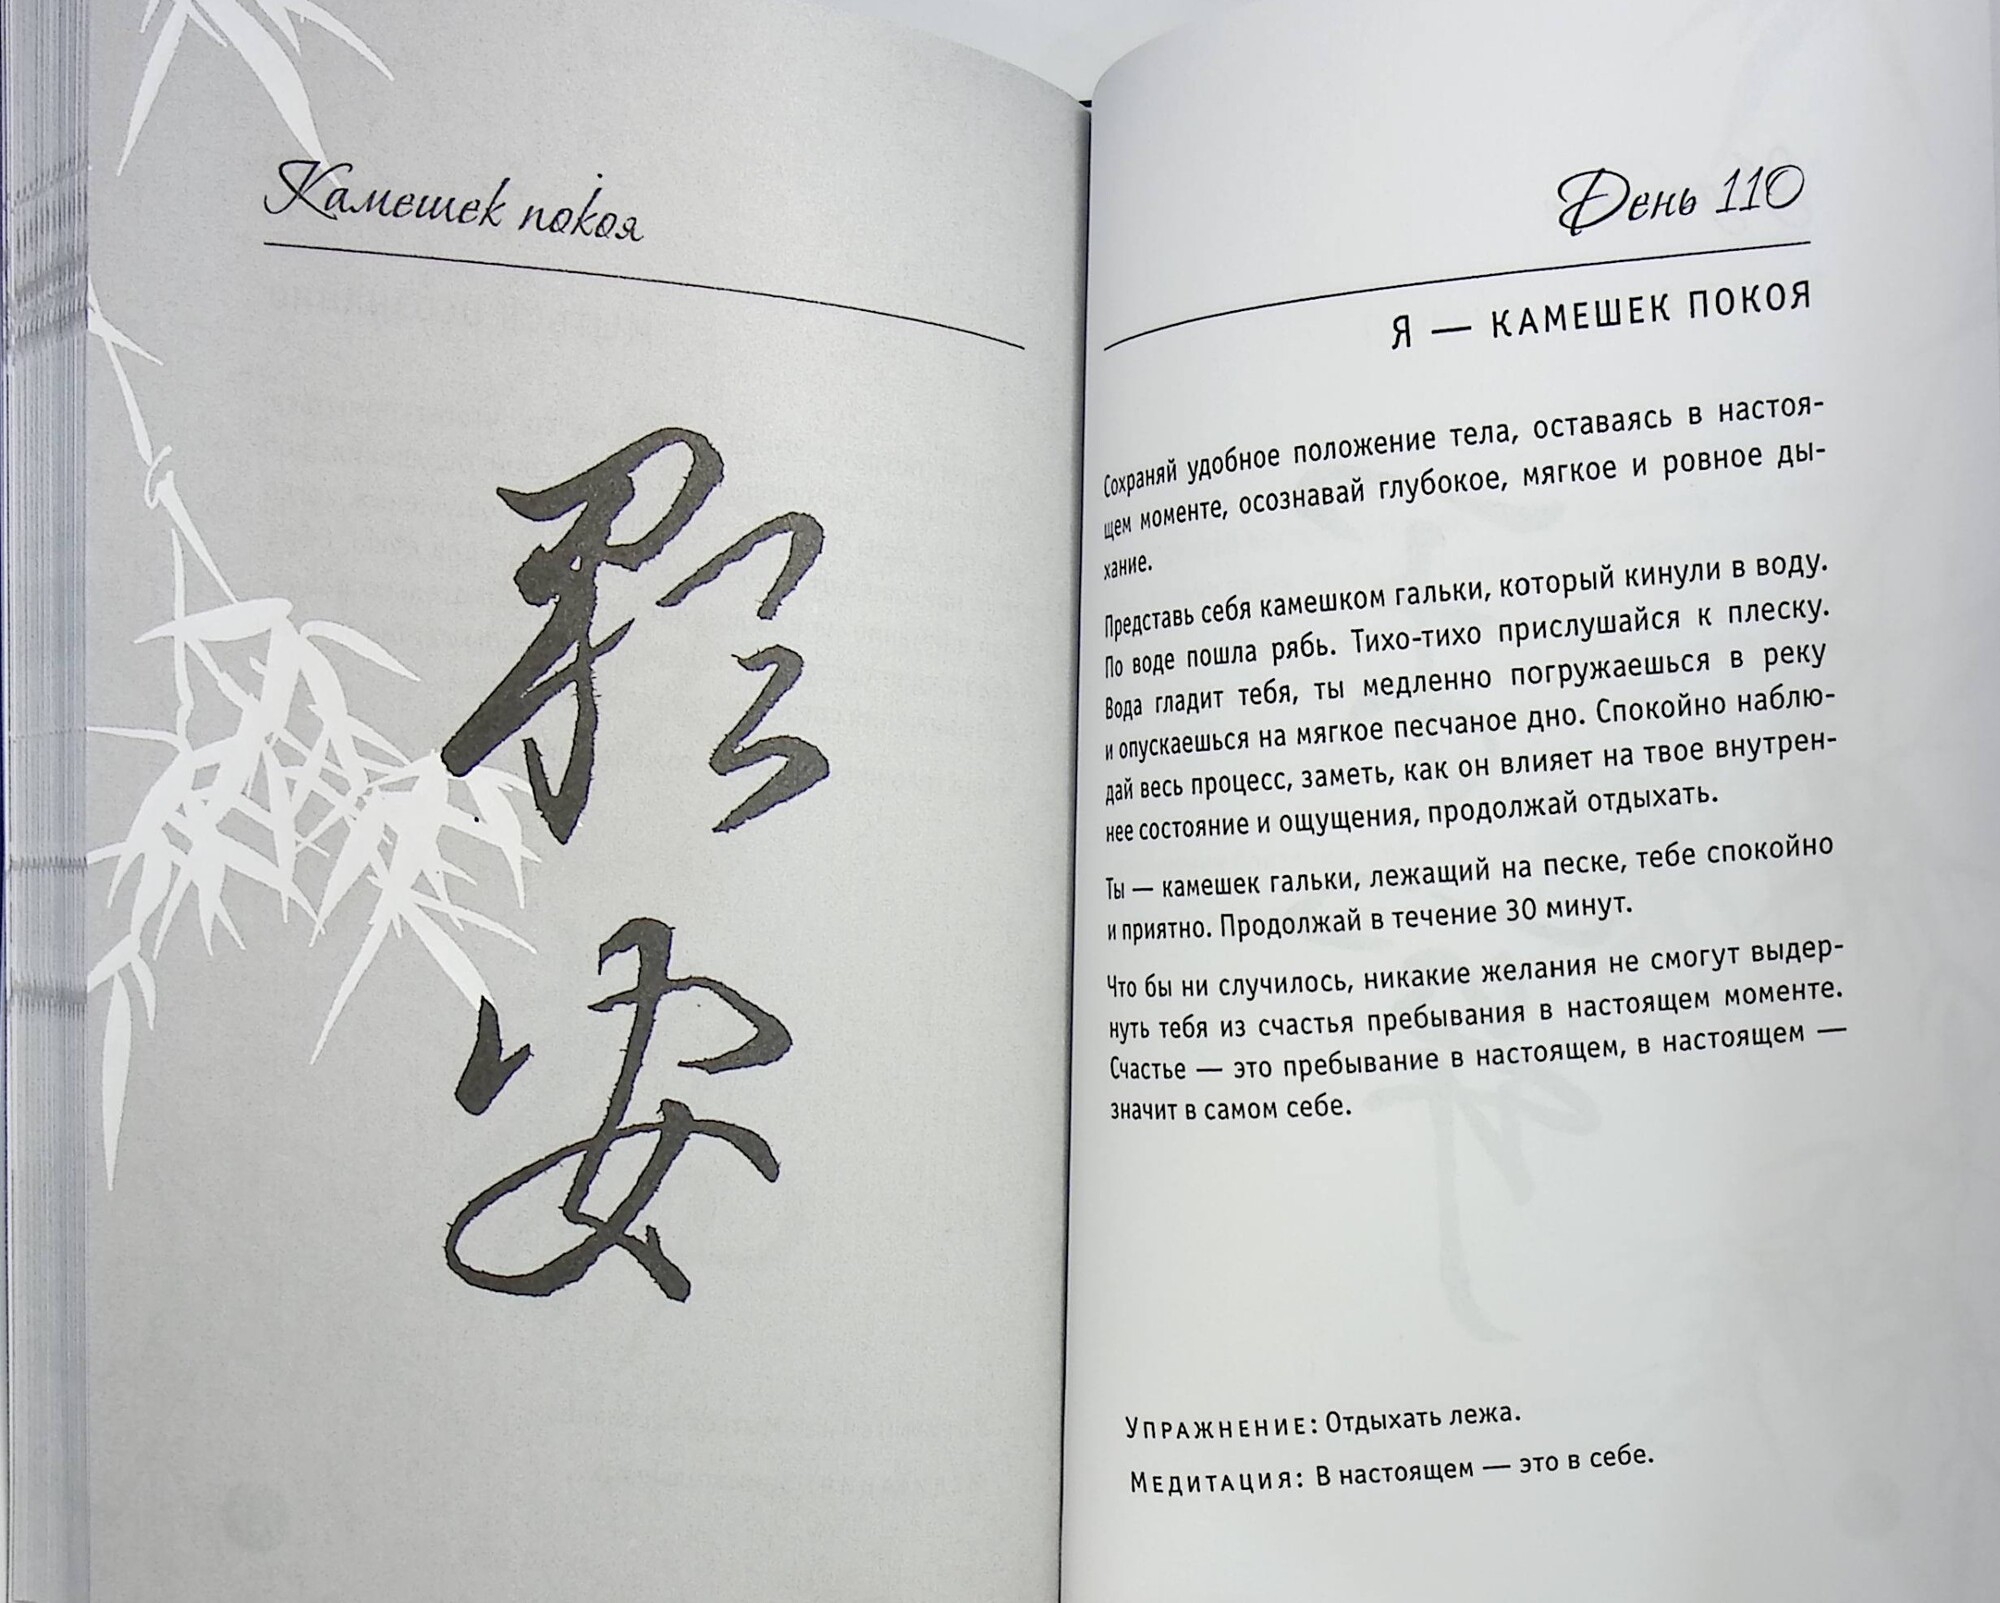 Камешек покоя
安
День 110
Я — КАМЕШЕК ПОКОЯ
Сохраняй удобное положение тела, оставаясь в настоя-
щем моменте, осознавай глубокое, мягкое и ровное ды-
хание.
Представь себя камешком гальки, который кинули в воду.
По воде пошла рябь. Тихо-тихо прислушайся к плеску.
Вода гладит тебя, ты медленно погружаешься в реку
и опускаешься на мягкое песчаное дно. Спокойно наблю-
дай весь процесс, заметь, как он влияет на твое внутрен-
нее состояние и ощущения, продолжай отдыхать.
Ты — камешек гальки, лежащий на песке, тебе спокойно
и приятно. Продолжай в течение 30 минут.
Что бы ни случилось, никакие желания не смогут выдер-
нуть тебя из счастья пребывания в настоящем моменте.
Счастье — это пребывание в настоящем, в настоящем —
значит в самом себе.
Упражнение: Отдыхать лежа.
Медитация: В настоящем — это в себе.